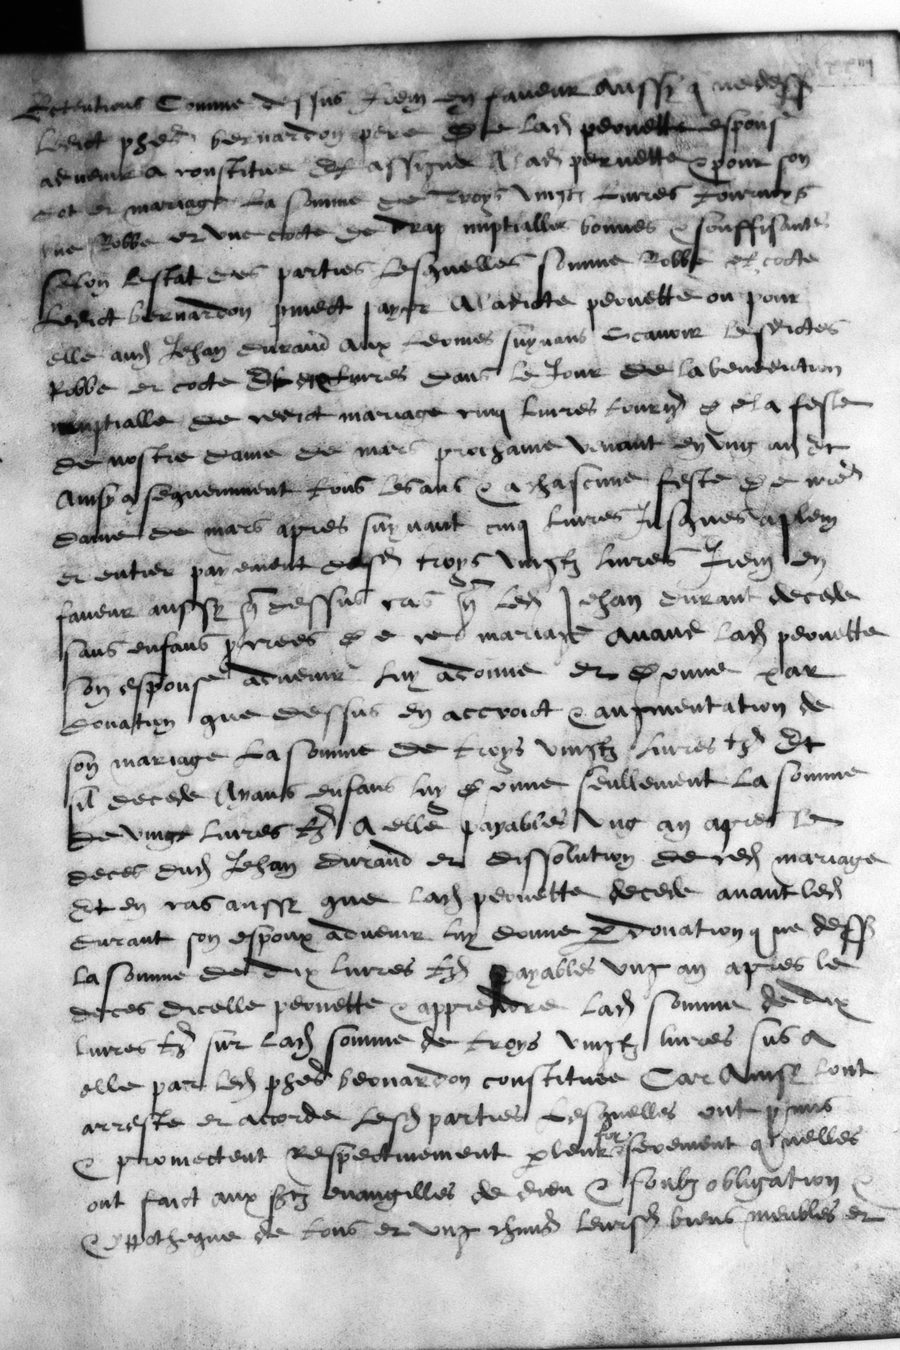 Retentions Comme dessus Item en faveur aussy que dess
Ledict phes bernardon pere de lad peronette espouse
advenir a constitue et assigne A lad peronette pour son
dot et mariage La somme de Troys vingtz Livres Tournoys
une Robbe et une cotte de drap nuptialles bonnes & souffisantes
selon lestat des parties Lesquelles somme Robbe et cotte
Ledict bernardon pmect payer A ladicte peronette ou pour
elle aud Jehan durand aux termes suyvans Scavoir lesdictes
Robbe et cotte et Livres dans le Jour de la benediction
nuptialle de cedict mariage cinq Livres tourn & a la feste
de nostre dame de mars prochaine venant en ung an Et
Ainsy consequemment tous les ans & a chascune feste de nre
dame de mars apres suyvant cinq Livres Jusques a plein
et entier payement desd troys vingtz livres Item en
faveur aussy q dessus cas q Led Jehan durant decede
sans enfans procrees de ce mariage Avant Lad peronette
son espouse advenir luy a donne et donne par
donation que dessus en accroict & augmentation de
son mariage La somme de troys vingtz livres tz Et
sil decede Ayans enfans luy donne seullement La somme
de vingt livres tz A elle payables ung an apres le
deces dud Jehan durand et dissolution de ced mariage
Et en cas aussy que lad peronette decede avant led
durant son espoux advenir luy donne p donation que dess
La somme de dix livres tz payables ung an apres le
deces dicelle peronette & apprendre lad somme de dix
livres tz sur lad somme de troys vingtz livres sus a
elle par led phes bernardon constituee Car Ainsy lont
arreste et acorde lesd parties Lesquelles ont pmis
& promectent Respectivement p leur serement quelles
ont faict aux sainctz evangilles de dieu & soubz obligation &
& ypotheque de tous et ung chuns leursd biens meubles et